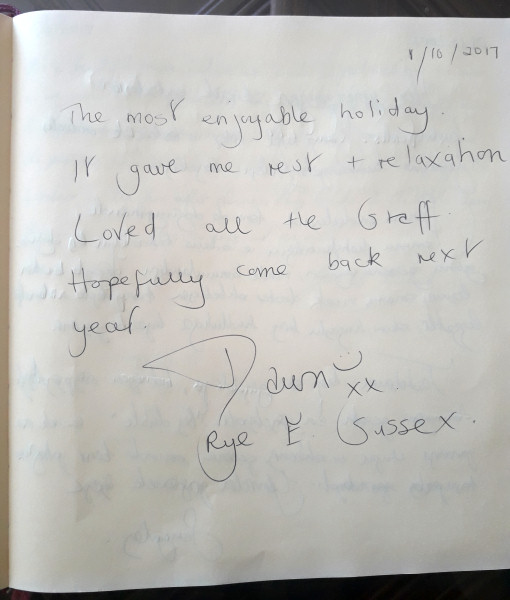 1/10/2017
The most enjoyable holiday.
It gave me rest + relaxation
Loved all the Graff.
Hopefully come back next
year.
Dawn xx.
Rye E. Sussex.